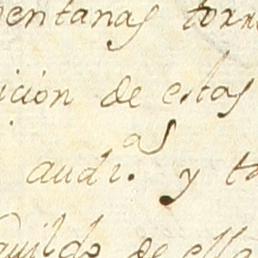 ventanas torr
ición de estas
audi.as y to
quildo de ella